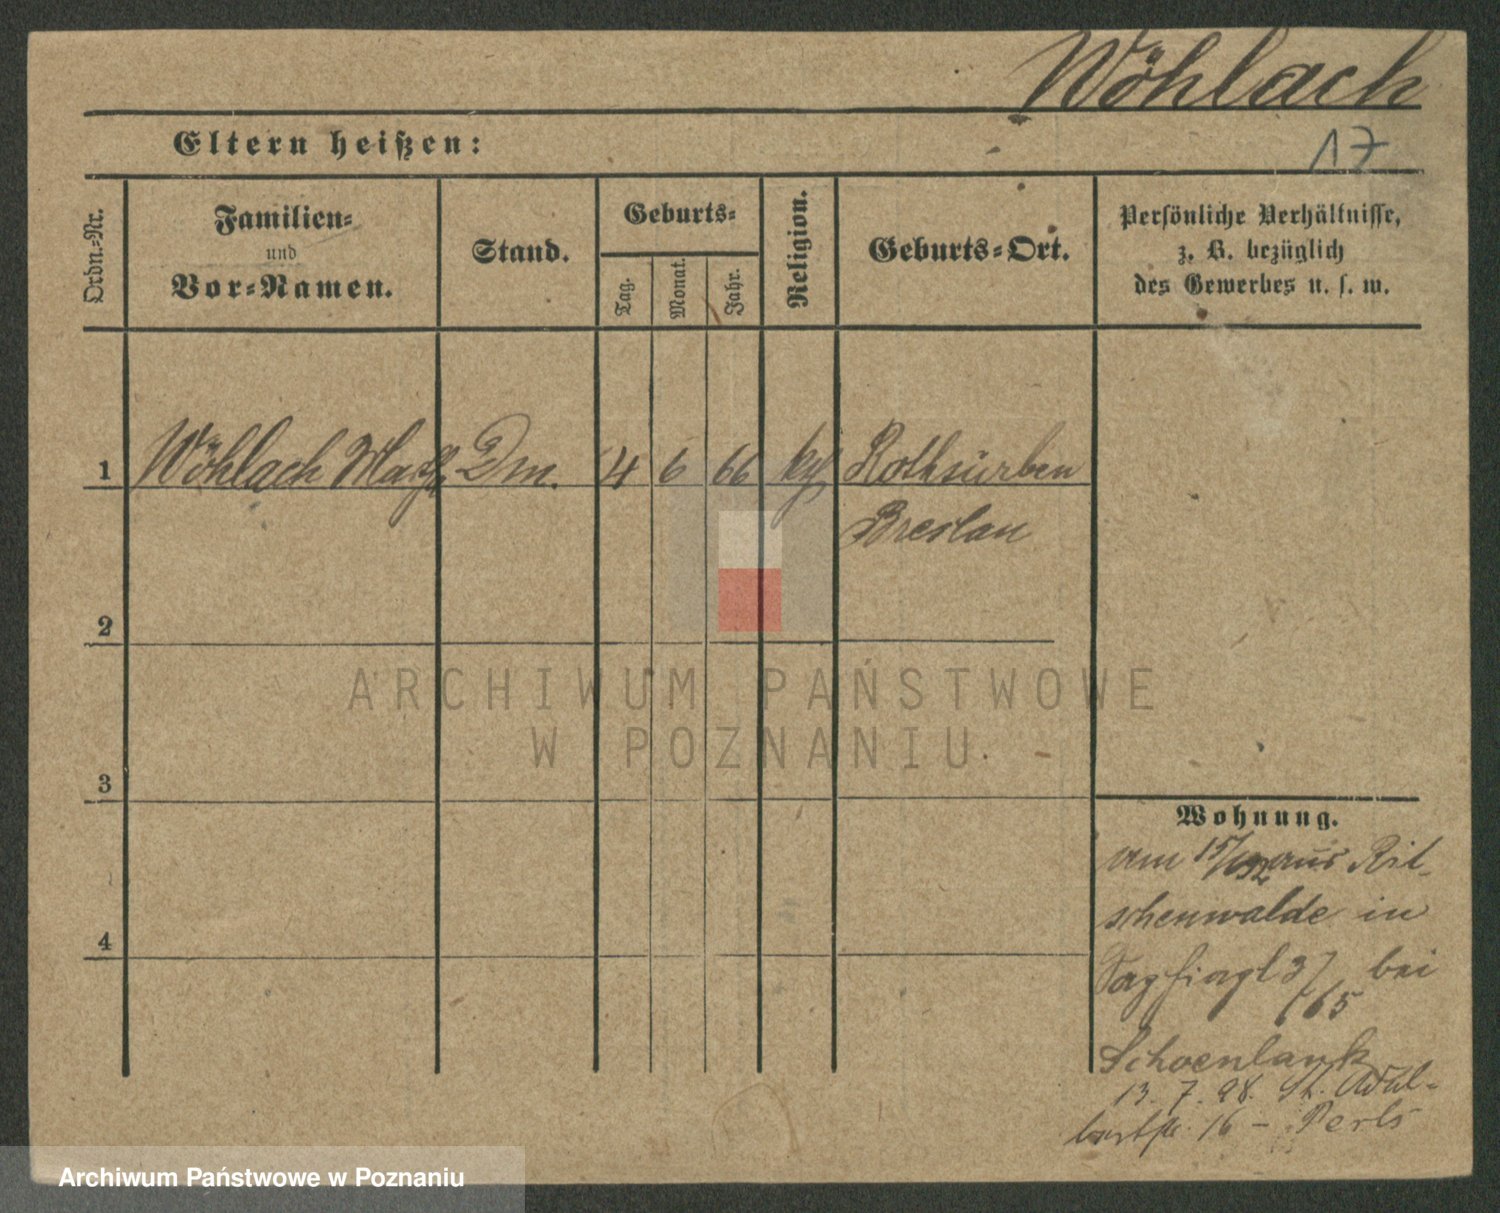 Wöhlach
Eltern heißen:
17
Ordn.-Nr.
Familien-
und
Vor-Namen.
Stand.
Geburts-
Tag.
Monat.
Jahr.
Religion.
Geburts-Ort.
Persönliche Verhältnisse,
z. B. bezüglich
des Gewerbes u. s. w.
1 Wöhlach Dm. 4 6 66 Rothsürben
Breslau
2
3
4
Wohnung.
am aus Rit-
schenwalde in
bei
165
Schoenlank
13. 7. 98. St. Adal-
bertstr. 16 - Perls
ARCHIWUM PAŃSTWOWE
W POZNANIU
Archiwum Państwowe w Poznaniu